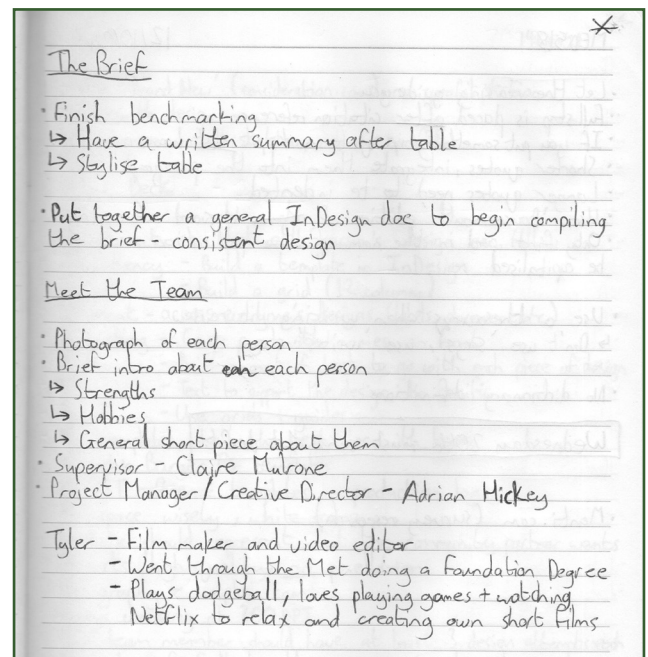 The Brief
· Finish benchmarking
↳ Have a written summary after table
↳ Stylise table
· Put together a general InDesign doc to begin compiling
the brief - consistent design
Meet the Team
· Photograph of each person
· Brief intro about each person
↳ Strengths
↳ Hobbies
↳ General short piece about them
· Supervisor - Claire Mulrone
· Project Manager / Creative Director - Adrian Hickey
Tyler - Film maker and video editor
- Went through the Met doing a Foundation Degree
- Plays dodgeball, loves playing games + watching
Netflix to relax and creating own short films